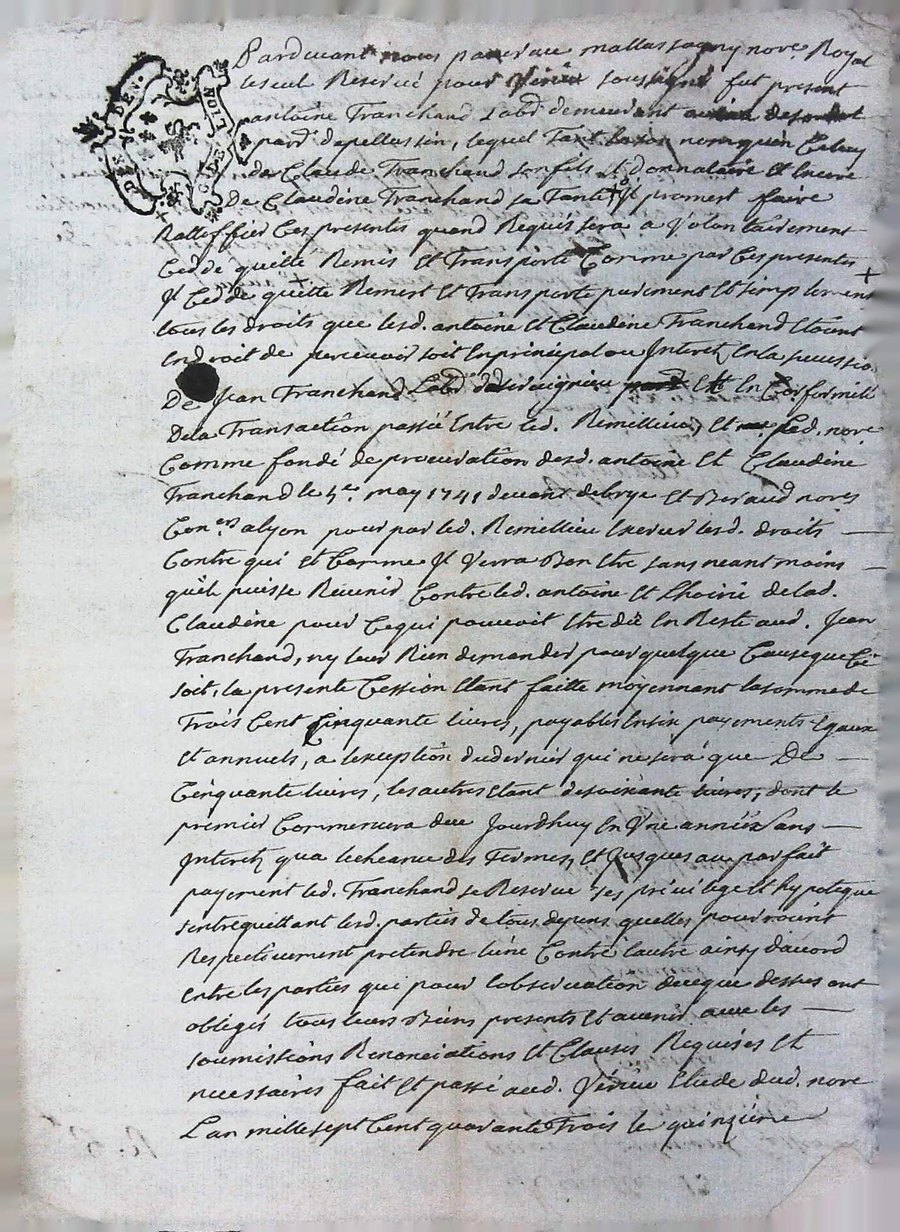 Pardevant nous pa mallassagny nore. Royal
leseul Reservé pour Vénin soussigné fut present
antoine Tranchand Labd. demeurant
pard. depellussin, lequel Tant en son nom qu'en Celuy
de Claude Tranchand son fils Et Donnataire Et heire
De Claudine Tranchand sa Tante promert faire
Ratteffier Ces presentes quand Requis sera a Volontairement
Cedde quitté Remis Et Transporté Comme par Ces presentes
Jl Cedde quitte Remert Et Transporte purement Et simplement
tous les droits que lesd. antoine Et Claudine Tranchand Etoient
Endroit de percevoir soit En principal ou Jnterets En la successio
De Jean Tranchand Labd. Et En Conformitté
Dela Transaction passée Entre led. Remillieu, Et led. nore
Comme fondé de procuration desd. antoine Et Claudine
Tranchand le may 1741 devant debrye Et Beraud nores
Con.ers alyon pour par led. Remillieu Exercer lesd. droits
Contre qui Et Comme Jl Verra Bon Etre sans neantmoins
quil puisse Revenir Contre led. antoine Et Lhoirie delad.
Claudine pour Cequi pouvoit Etre dû En Reste aud. Jean
Tranchand, ny leur Rien demander pour quelque Cause que Cè
soit, la presente Cession Etant faitte moyennant la somme de
Trois Cent Cinquante livres, payables En six payements Egaux
Et annuels, a lexception dudernier qui ne sera que De
Cinquante livres, les autres Etant de soixante livres, dont le
premier Commencera due Jourdhuy En Une année sans
Jnterets qua lecheance des Termes, Et Jusques au parfait
payement led. Tranchand se Reserve ses privilege Et hypoteque
sentrequittant lesd. parties de tous depens quelles pouroint
Respectivement pretendre lune Contre lautre ainsy daccord
Entre les parties qui pour lobservation duque dessus ont
obligés tous leurs Biens presents Et avenir avec les
soumissions Renonciations Et Clauses Requises Et
necessaires fait Et passé aud. Vénin Etude dud. nore
Lan mille sept Cent quarante Trois le quinzieme